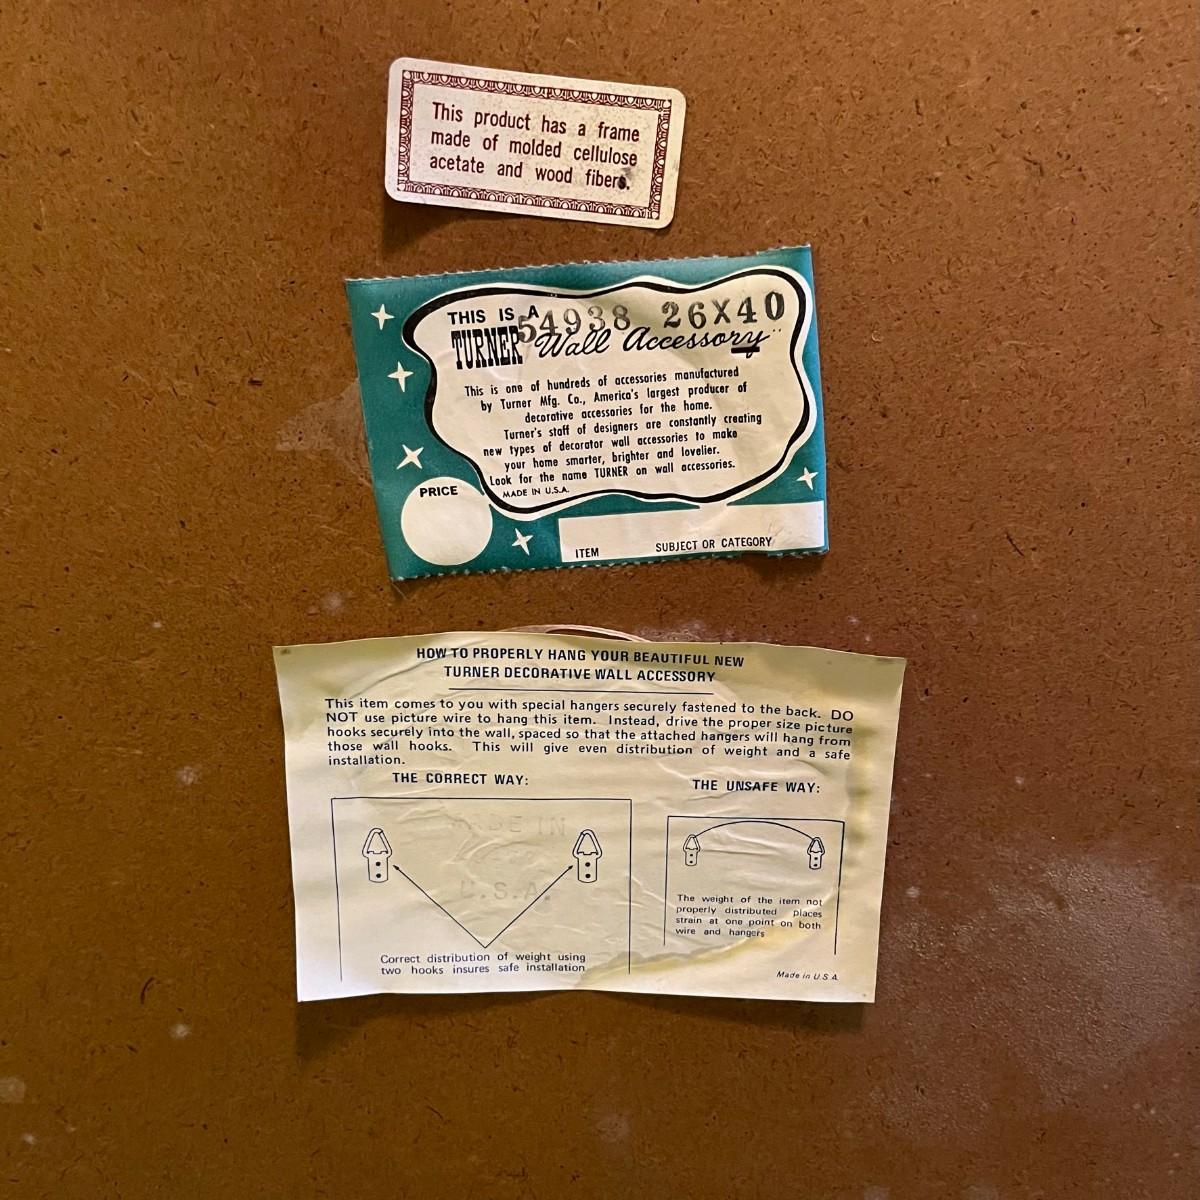 This product has a frame
made of molded cellulose
acetate and wood fibers.
THIS IS A
54938 26X40
TURNER Wall Accessory"
This is one of hundreds of accessories manufactured
by Turner Mfg. Co., America's largest producer of
decorative accessories for the home.
Turner's staff of designers are constantly creating
new types of decorator wall accessories to make
your home smarter, brighter and lovelier.
Look for the name TURNER on wall accessories.
MADE IN U.S.A.
PRICE
ITEM SUBJECT OR CATEGORY
HOW TO PROPERLY HANG YOUR BEAUTIFUL NEW
TURNER DECORATIVE WALL ACCESSORY
This item comes to you with special hangers securely fastened to the back. DO
NOT use picture wire to hang this item. Instead, drive the proper size picture
hooks securely into the wall, spaced so that the attached hangers will hang from
those wall hooks. This will give even distribution of weight and a safe
installation.
THE CORRECT WAY:
MADE IN
U.S.A.
Correct distribution of weight using
two hooks insures safe installation
THE UNSAFE WAY:
The weight of the item not
properly distributed places
strain at one point on both
wire and hangers
Made in U.S.A.